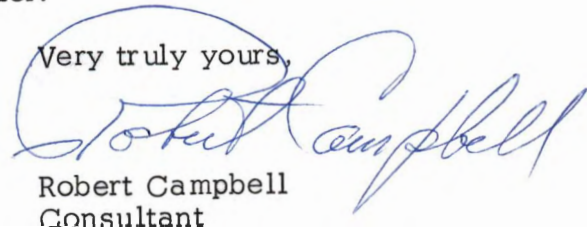 Very truly yours,
Robert Campbell
Robert Campbell
Consultant